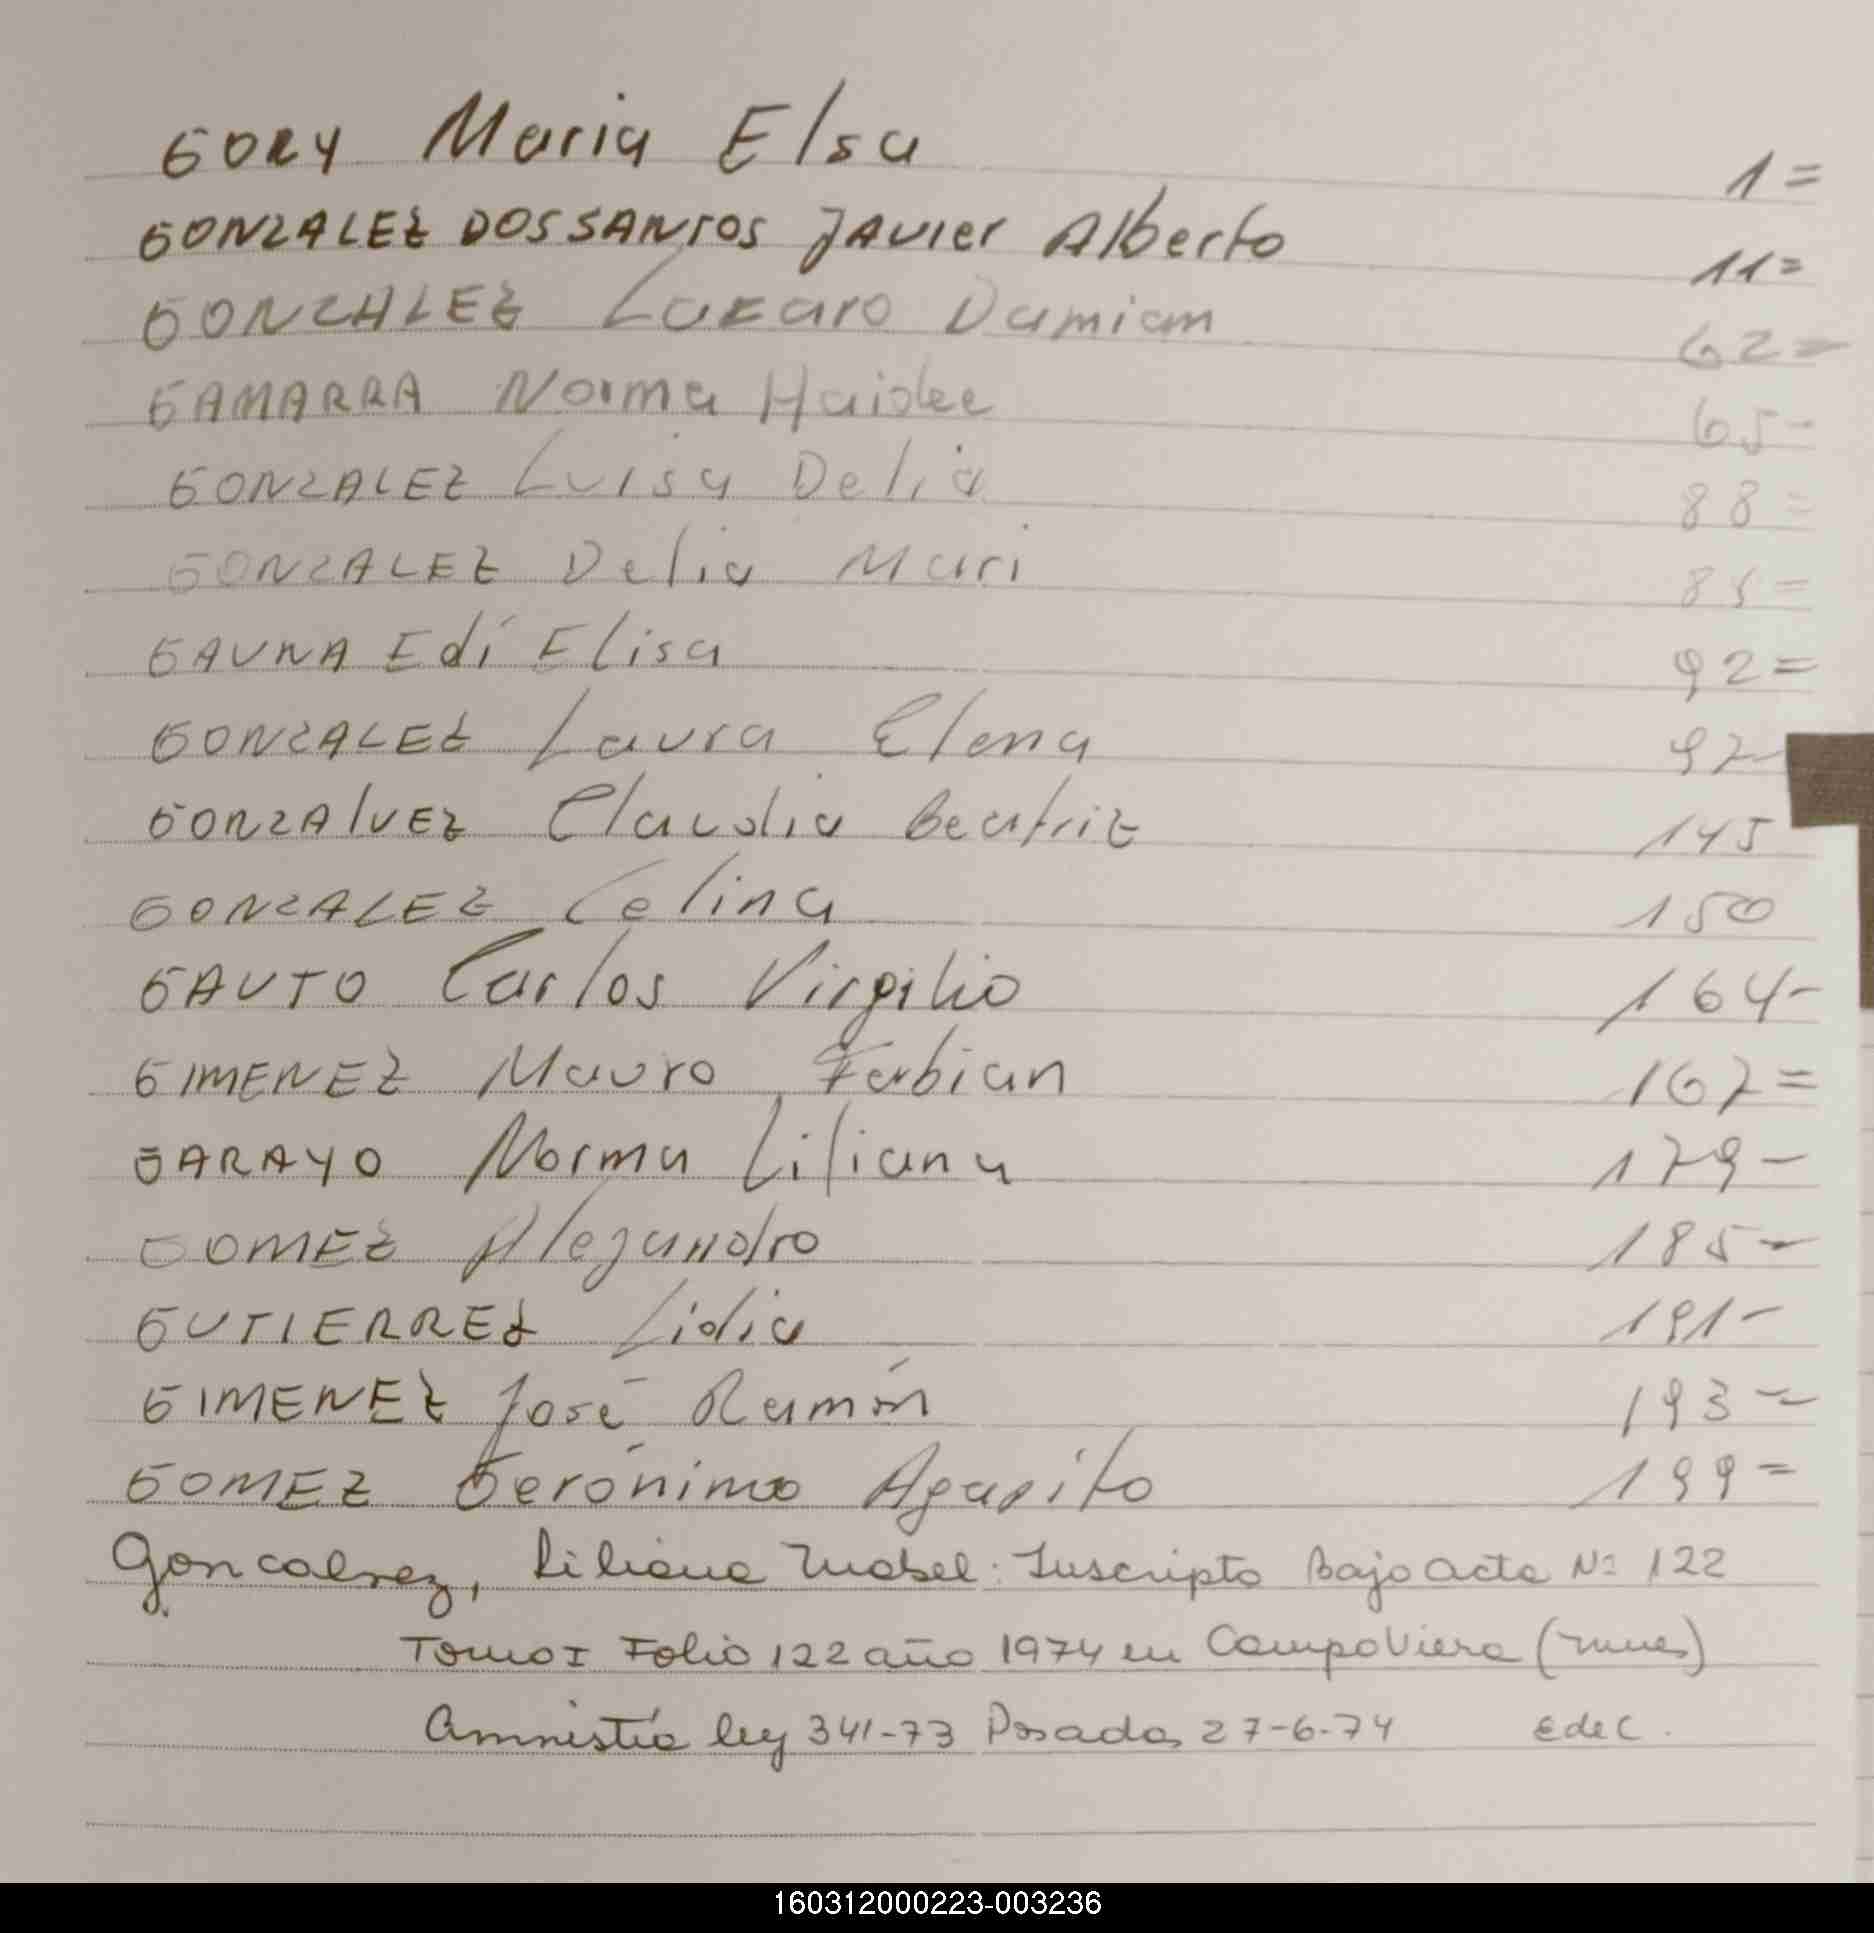 GORY Maria Elsa 1=
GONZALEZ DOS SANTOS Javier Alberto 11=
GONZALEZ Lazaro Damian 62=
GAMARRA Norma Haidee 65-
GONZALEZ Luisa Delia 88=
GONZALEZ Delia Mari
GAUNA Edí Elisa 92=
GONZALEZ Laura Elena 97-
GONZALVEZ Claudia Beatriz 145
GONZALEZ Celina 150
GAUTO Carlos Virgilio 164-
GIMENEZ Mauro Fabian 167=
GARAYO Norma Liliana 179-
GOMEZ Alejandro 185-
GUTIERREZ Lidia 191-
GIMENEZ José Ramón 193=
GOMEZ Gerónimo Agapito 199=
Goncalvez, Liliana Mabel: Inscripto Bajo acta Nº 122
Tomo I Folio 122 año 1974 en Campo Viera (mnes)
Amnistía ley 341-73 Posadas 27-6-74 EdeC.
160312000223-003236